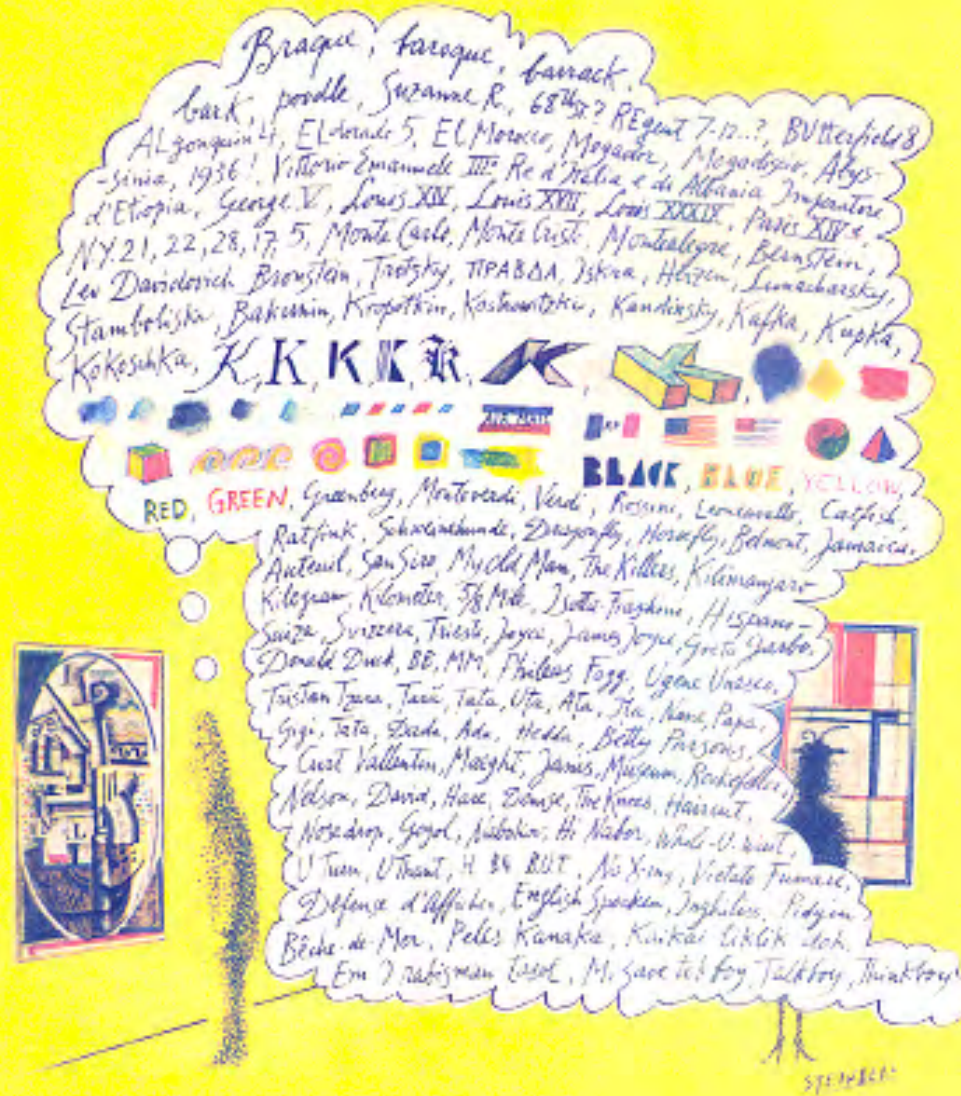 Braque, baroque, barrack,
bark, poodle, Suzanne R., 68th St.? REgent 7-12..?, BUtterfield 8
ALgonquin 4, ELdorado 5, EL Morocco, Mogador, Mogadiscio, Abys-
-sinia, 1936! Vittorio Emanuele III° Re d'Italia e di Albania Imperatore
d'Etiopia, George V, Louis XIV, Louis XVII, Louis XXXIX, Paris XIVe,
NY. 21, 22, 28, 17, 5, Monte Carlo, Monte Cristo, Montealegre, Bernstein,
Lev Davidovich Bronstein, Trotzky, ПРАВДА, Iskra, Herzen, Lunacharsky,
Stambolisky, Bakunin, Kropotkin, Kostrowitzki, Kandinsky, Kafka, Kupka,
Kokoschka, K, K, K, K, K, K, K,
BLACK, BLUE, YELLOW,
RED, GREEN, Greenberg, Monteverdi, Verdi, Rossini, Leoncavallo, Catfish,
Ratfink, Schweinhunde, Dragonfly, Horsefly, Belmont, Jamaica,
Auteuil, San Siro, My Old Man, The Killers, Kilimanjaro
Kilogram, Kilometer, 5/8 Mile, Isotta-Fraschini, Hispano-
Suiza, Svizzera, Trieste, Joyce, James Joyce, Greta Garbo,
Donald Duck, BB, MM, Phileas Fogg, Ugene Unesco,
Tristan Tzara, Tata, Uta, Ata, Ita, Nana, Papa,
Gigi, Tata, Dada, Ada, Hedda, Betty Parsons,
Curt Vallentin, Maeght, Janis, Museum, Rockefeller,
Nelson, David, Hare, Denise, The Knees, Haircut,
Nosedrop, Gogol, Nabokov, Hi Nabor, Whale-U. want,
U Turn, U Thant, No X-ing, Vietato Fumare,
Défense d'Afficher, English Spoken, Pidgin
Bêche-de-Mer, Peles Kanaka, Kaikai liklik dok.
Talkboy, Thinkboy
STEINBERG